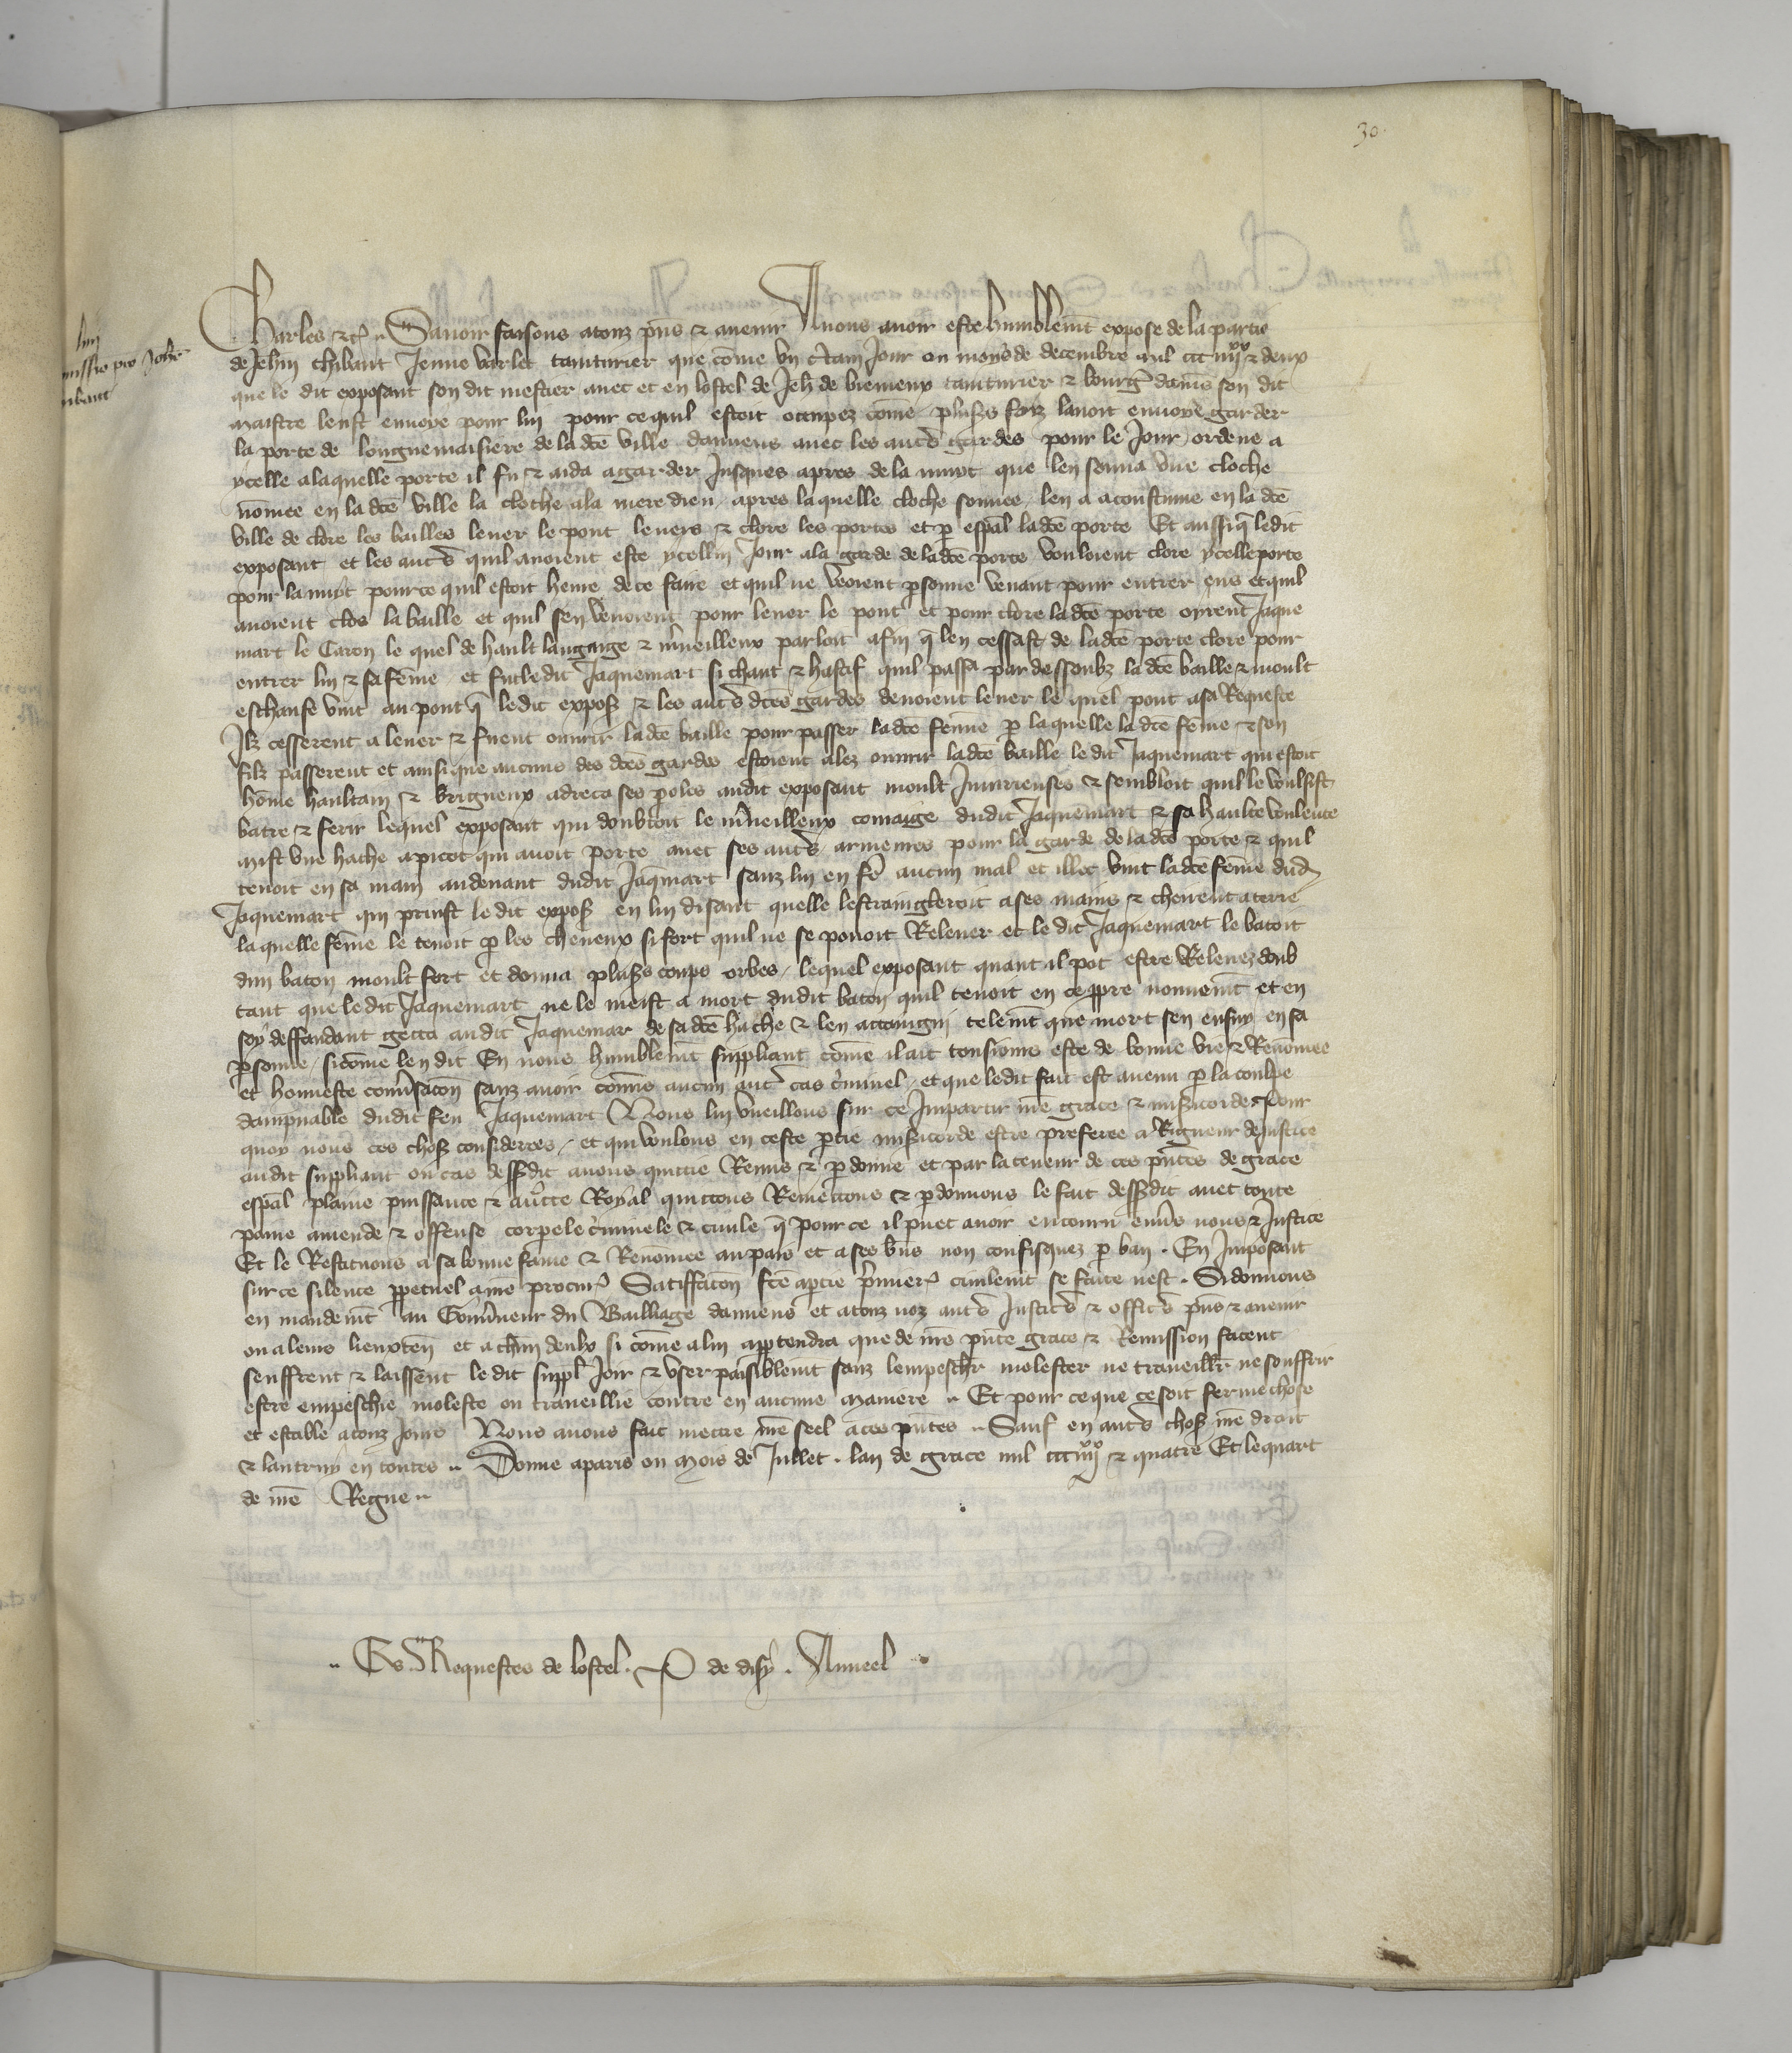 30
liii
missio pro Johe
ibaut
Charles &c. Savoir faisons a touz pns & avenir A nous avoir este humblemt expose de la partie
de Jehin Thibaut Jenne varlet tainturier que come un ctain Jour ou moys de decembre mil ccc iiijxx & deux
que le dit exposant son dit mestier avec et en lostel de Jeh de biemeux tainturier & bourg damiens son dit
maistre leust envoye pour lui pour ce quil estoit occupez come plusrs foiz lavoit envoye garder
la porte de longuemaisiere de la dce ville damiens avec les autrs gardes pour le Jour ordene a
ycelle a laquelle porte il fu & aida a garder Jusques apres de la nuyt que len sonna vne cloche
nomee en la dce ville la cloche a la mere dieu apres laquelle cloche sonnee len a acoustume en la dce
ville de clore les bailles lever le pont leveis & clore les portes et p espal la dce porte Et aussi q ledit
exposant et les autrs quil avoient este ycellui Jour a la garde de la dce porte vouloient clore ycelle porte
pour la nuyt pour ce quil estoit heure de ce faire et quil ne veoient psonne venant pour entrer ens et quil
avoient clos la baille et quil sen venoient pour lever le pont et pour clore la dce porte oyrent Jaque
mart le Caron le quel de hault langaige & mveilleux parloit afin q len cessast de la dce porte clore pour
entrer lui & sa feme et fu ledit Jaquemart si chaut & hastif quil passa par dessoubz la dce baille & moult
eschaufe vint au pont q ledit expos & les autrs dces gardes devoient lever le quel pont a sa Requeste
Ilz cesserent a lever & furent ouvrir la dce baille pour passer la dce feme p laquelle la dce feme & son
filz passerent et ainsi que aucuns des dces gardes estoient alez ouvrir la dce baille le dit Jaquemart qui estoit
home haultain & brigueux adreca ses poles audit exposant moult Iniurieuses & sembloit quil le voulsist
batre & ferir lequel exposant qui doubtoit le mveilleux coraige dudit Jaquemart & sa haulte voulente
mist vne hache a picot qui avoit porte avec ses autrs armeures pour la garde de la dce porte & quil
tenoit en sa main audevant dudit Jaqmart sanz lui en fe aucun mal et illec vint la dce feme dud
Jaquemart qui prinst le dit expos en lui disant quelle lestraingleroit a ses mains & cheurent a terre
laquelle feme le tenoit p les cheveux si fort quil ne se povoit Relever et le dit Jaquemart le batoit
dun baton moult fort et donna plusrs coups orbes lequel exposant quant il pot estre Relevez doub
tant que ledit Jaquemart ne le meist a mort dudit baton quil tenoit en ce ppre mouvemt et en
soy deffandant gecta audit Jaquemar de sa dce hache & len attaingni telemt que mort sen ensuy en sa
psonne sicome len dit En nous humblemt suppliant come il ait tousiours este de bonne vie & Renomee
et honneste convsacon sanz avoir comis aucun autr cas criminel et que ledit fait est avenu p la coulpe
dampnable dudit feu Jaquemart Nous lui vueillons sur ce Impartir nre grace & misicorde Pour
quoy nous ces choses considerees et qui voulons en ceste ptie misicorde estre preferee a Rigueur de Justice
audit suppliant ou cas dessdit avons quictie Remis & pdonne et par la teneur de ces pntes de grace
espal plaine puissance & auctte Royal quictons Remettons & pdonnons le fait dessdit avec toute
paine amende & offense corpele criminele & civile q pour ce il puet avoir encouru envs nous & Justice
Et le Restituons a sa bonne fame & Renomee au pais et a ses bns non confisquez p ban . En Imposant
sur ce silence ppetuel a nre procur Satiffacon fce a ptie pmier civilemt se faite nest . Si donnons
en mandemt au Gouvneur du Bailliage damiens et a touz noz autrs Justicrs & officrs pns & avenir
ou a leurs lieuxten et a chun deulx si come a lui apptendra que de nre pnte grace & Remission facent
seuffrent & laissent le dit suppl Joir & vser paisiblemt sanz lempeschr molester ne traveillr ne souffrir
estre empeschie moleste ou traveillie contre en aucune maniere Et pour ce que ce soit ferme chose
et estable a touz Jours Nous avons fait mettre nre seel a ces pntes Sauf en autrs choses nre droit
& lautruy en toutes Donne a paris ou mois de Juillet . lan de grace mil ccc iiijxx & quatre Et le quart
de nre Regne
Es Requestes de lostel . P de disy . Anneel